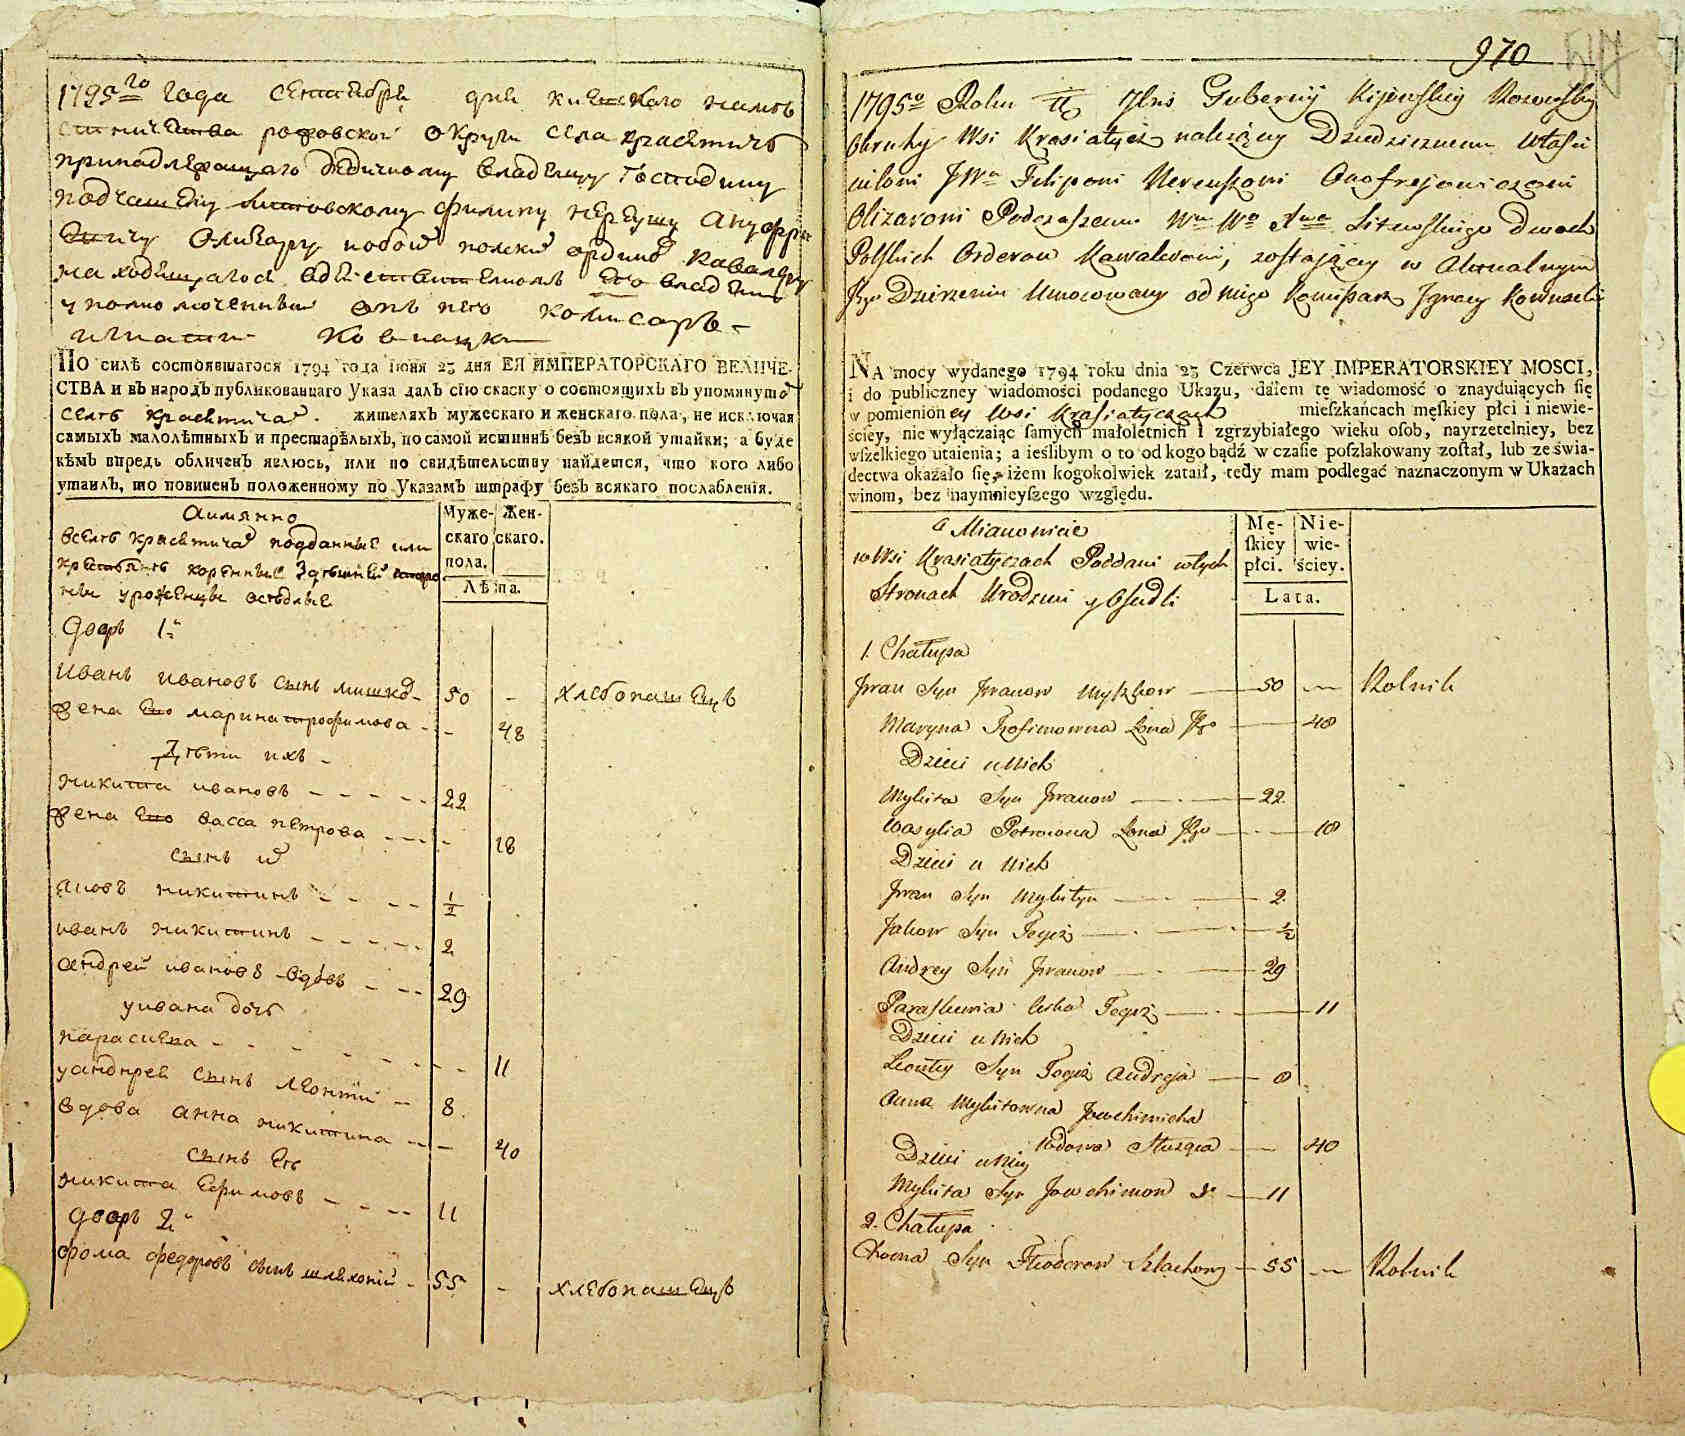 1795го года сентебря дня киевского наме
стничества родовской округи села красятичъ
принадлежащаго дедичному владелцу господину
подчашему литовскому филипу нереушу ануфри
евичу олизару обоихъ полскихъ ординовъ кавалеру
находящагося в действителномъ его владении
уполномоченный отъ него комисаръ
игнатий
ПО силѣ состоявшагося 1794 года Іюня 23 дня ЕЯ ИМПЕРАТОРСКАГО ВЕЛИЧЕ-
СТВА и въ народъ публикованнаго Указа далъ сію скаску о состоящихъ въ упомянутомъ
селѣ красятичахъ жителяхъ мужескаго и женскаго пола, не исключая
самыхъ малолѣтныхъ и престарѣлыхъ, по самой истиннѣ безъ всякой утайки; а буде
кѣмъ впредь обличенъ явлюсь, или по свидѣтельству найдется, что кого либо
утаилъ, то повиненъ положенному по Указамъ штрафу безъ всякаго послабленія.
Аимянно
вселе красятичахъ подданные или
крестьяне коренные здешней сторо
ны уроженцы оседлые
Муже-
скаго
пола.
Жен-
скаго.
Лѣта.
дворъ 1й
Иванъ ивановъ сынъ мишко 50 - хлебопашецъ
жена Ево марина трофимова - 48
Дети ихъ
никита ивановъ 22
жена Ево васса петрова - 18
сынъ их
яковъ никитинъ 1/2
иванъ никитинъ 2
андрей ивановъ вдовъ 29
уивана дочь
параскева 11
уандрея сынъ леонтий 8
вдова анна никитина - 40
сынъ Ее
никита Ефимовъ 11
дворъ 2й
фома федоровъ сынъ шляхопий 55 - хлебопашецъ
970
1795o Roku Guberniy Kijowskiy
Okruhy Wsi Krasiatycz należący Dziedzicznemu Włości
cielowi JWu Filipowi Nereuszowi Onofrejowiczowi
Olizarowi Podczaszemu Litewskiego Dwoch
Polskich Orderow Kawalerowi, zostający w Aktualnym
Jego Dzierzeniu Umocowany od niego Komisarz Jgnacy
NA mocy wydanego 1794 roku dnia 23 Czerwca JEY IMPERATORSKIEY MOSCI,
i do publiczney wiadomości podanego Ukazu, dałem tę wiadomość o znayduiących się
w pomienioney Wsi Krasiatyczach mieſzkańcach męſkiey płci i niewie-
ściey, nie wyłączaiąc ſamych małoletnich i zgrzybiałego wieku oſob, nayrzetelniey, bez
wſzelkiego utaienia; a ieślibym o to od kogo bądź w czaſie poſzlakowany zoſtał, lub ze świa-
dectwa okazało się, iżem kogokolwiek zataił, tedy mam podlegać naznaczonym w Ukazach
winom, bez naymnieyſzego względu.
a Mianowicie
w Wsi Krasiatyczach Poddani w tych
Stronach Urodzeni y Osiedli
Mę-
ſkiey
płci.
Nie-
wie-
ściey.
Lata.
1. Chałupa
Jwan Syn Jwanow Myszkow 50 Rolnik
Maryna Trofimowna Żona Jego 48
Dzieci u Nich
Mykita Syn Jwanow 22
Wasylia Petrowna Żona Jego 18
Dzieci u Nich
Jwan Syn Mykityn 2
Jakow Syn Tegoż 1/2
Andrey Syn Jwanow 29
Paraskewia Corka Tegoż 11
Dzieci u Nich
Leontey Syn Tegoż Andreja 8
Anna Mykitowna Jowchimicha
Wdowa Służąca 40
Dzieci u Niey
Mykita Syn Jowchimow 11
2. Chałupa
Choma Syn Fteodorow Szlachowy 55 Rolnik